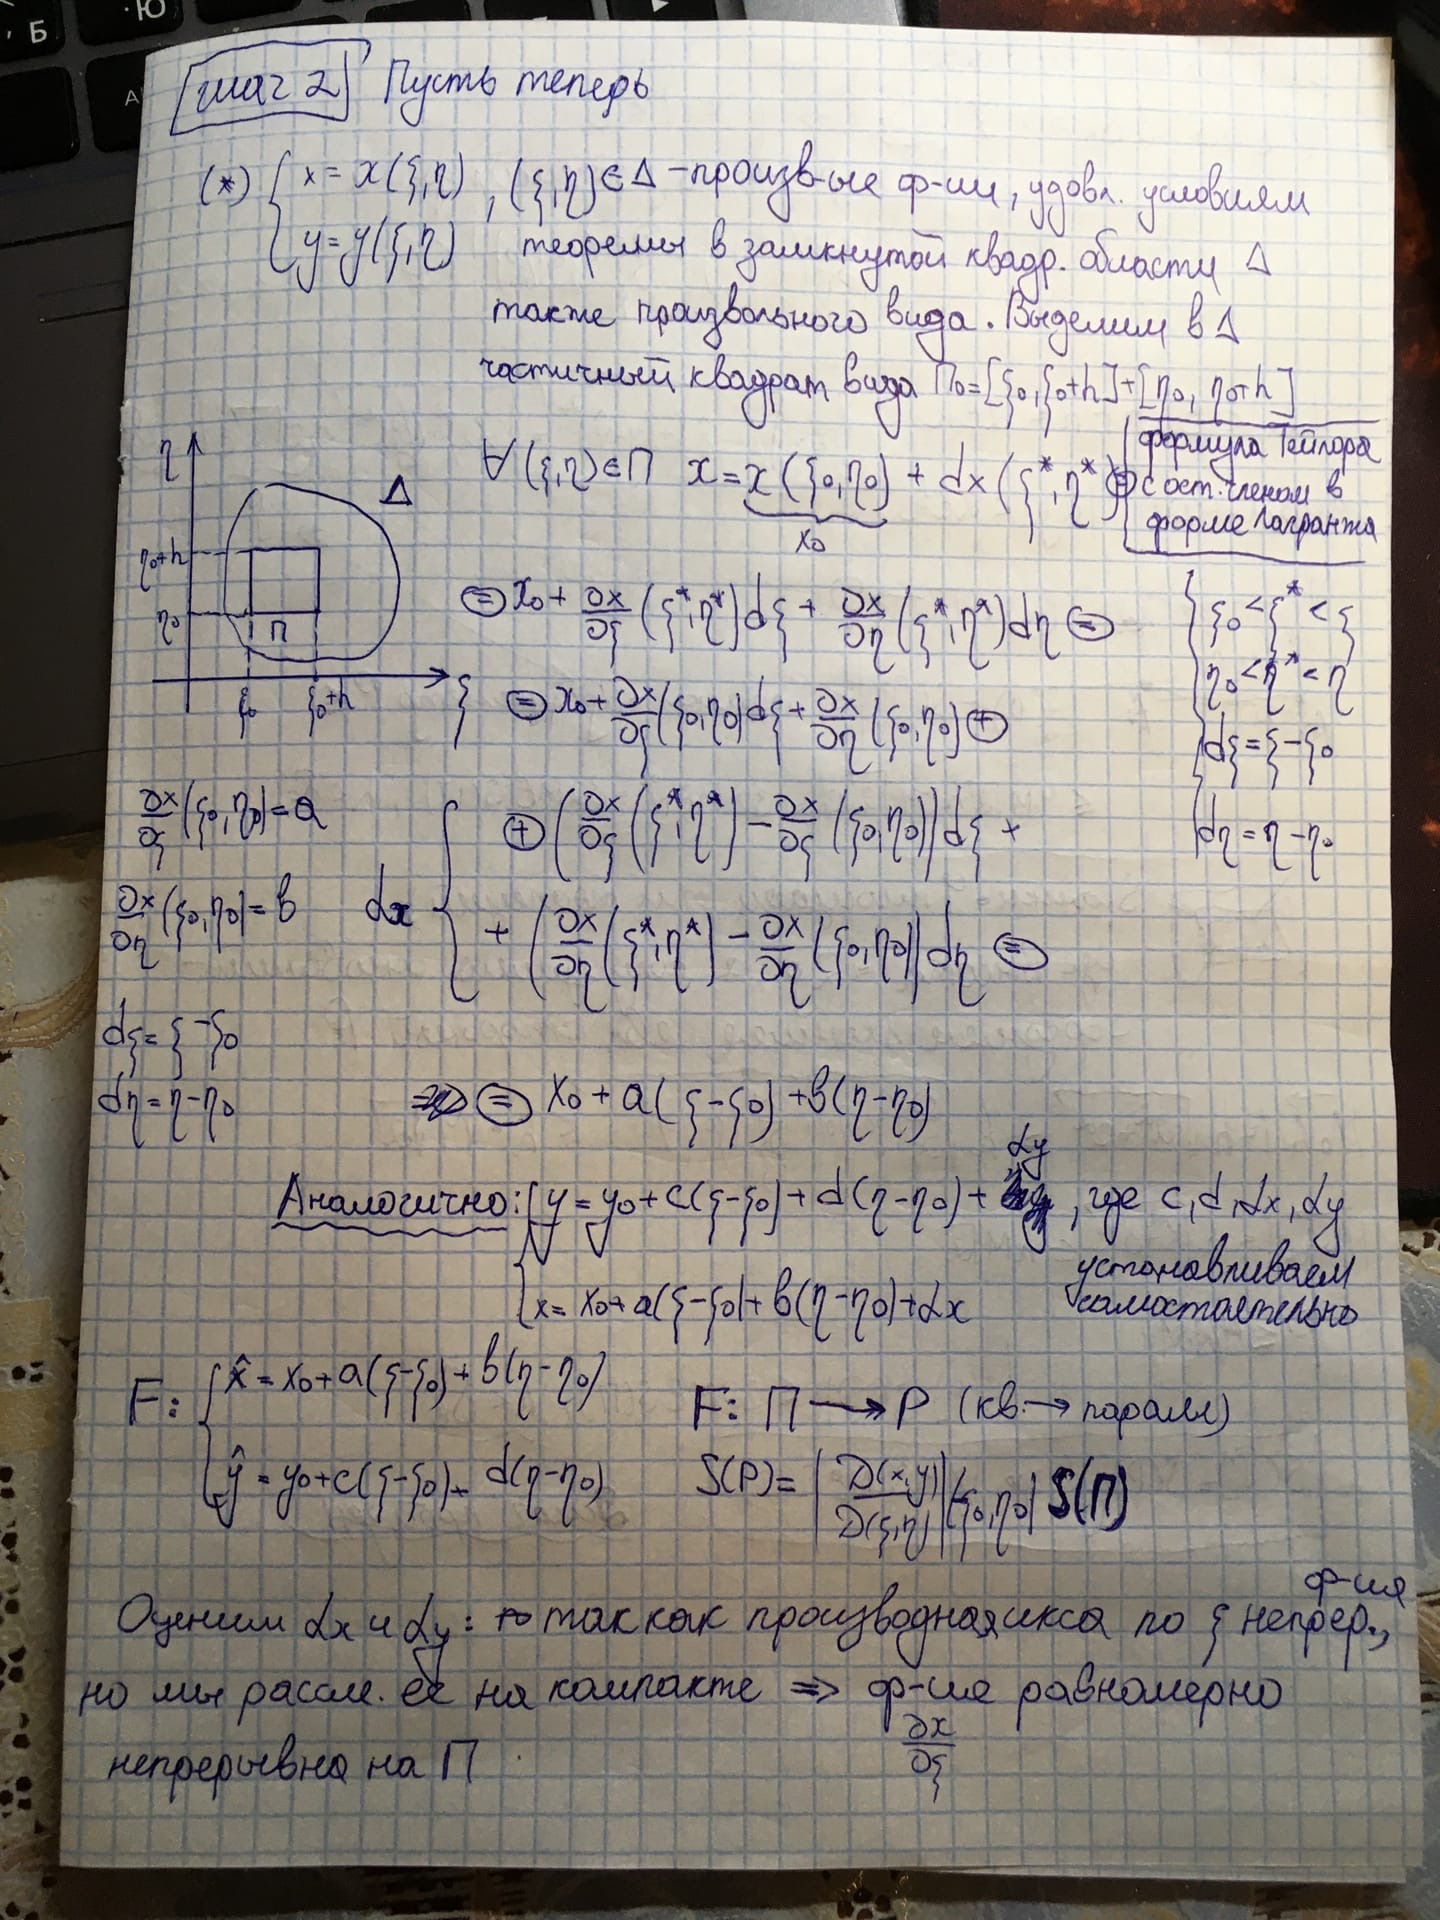 Шаг 2 Пусть теперь
(*) { x = x(ξ,η) , (ξ,η) ∈ Δ - произв-ые ф-ии, удовл. условиям
y = y(ξ,η) теоремы в замкнутой квадр. области Δ
также произвольного вида. Выделим в Δ
частичный квадрат вида П₀ = [ξ₀, ξ₀+h] + [η₀, η₀+h]
η
Δ
η₀+h
η₀
П
ξ₀ ξ₀+h ξ
∀(ξ,η) ∈ П x = x(ξ₀,η₀) + dx(ξ*,η*) ⊜
x₀
формула Тейлора
с ост. членом в
форме Лагранжа
⊜ x₀ + ∂x/∂ξ (ξ*,η*)dξ + ∂x/∂η (ξ*,η*)dη ⊜
{ ξ₀ < ξ* < ξ
η₀ < η* < η
dξ = ξ - ξ₀
dη = η - η₀
⊜ x₀ + ∂x/∂ξ (ξ₀,η₀)dξ + ∂x/∂η (ξ₀,η₀) ⊕
∂x/∂ξ (ξ₀,η₀) = a
∂x/∂η (ξ₀,η₀) = b
dξ = ξ - ξ₀
dη = η - η₀
αx { ⊕ (∂x/∂ξ (ξ*,η*) - ∂x/∂ξ (ξ₀,η₀))dξ +
+ (∂x/∂η (ξ*,η*) - ∂x/∂η (ξ₀,η₀))dη ⊜
⊜ x₀ + a(ξ-ξ₀) + b(η-η₀)
Аналогично: { y = y₀ + c(ξ-ξ₀) + d(η-η₀) + αy , где c, d, αx, αy
устанавливаем
самостоятельно
x = x₀ + a(ξ-ξ₀) + b(η-η₀) + αx
F: { x̂ = x₀ + a(ξ-ξ₀) + b(η-η₀)
ŷ = y₀ + c(ξ-ξ₀) + d(η-η₀)
F: П → P (кв. → паралл)
S(P) = |D(x,y)/D(ξ,η)| (ξ₀,η₀) S(П)
Оценим αx и αy: так как производная икса по ξ непрер. ф-ия,
но мы рассм. её на компакте ⇒ ф-ия равномерно
∂x/∂ξ
непрерывна на П